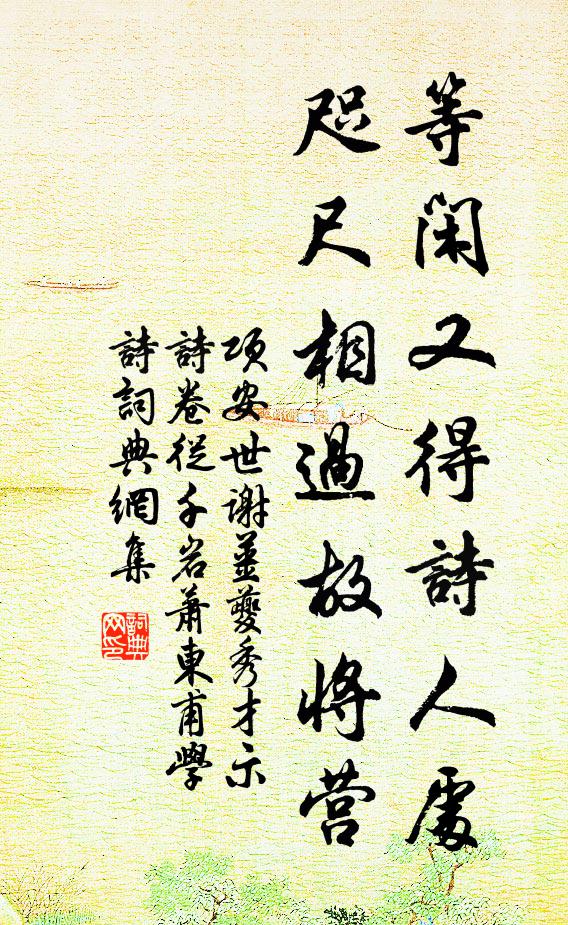 等閑又得詩人處
咫尺相過故將营
項安世謝姜夔秀才示
詩卷從千岩蕭東甫學
詩詞典網集
詞典
网印